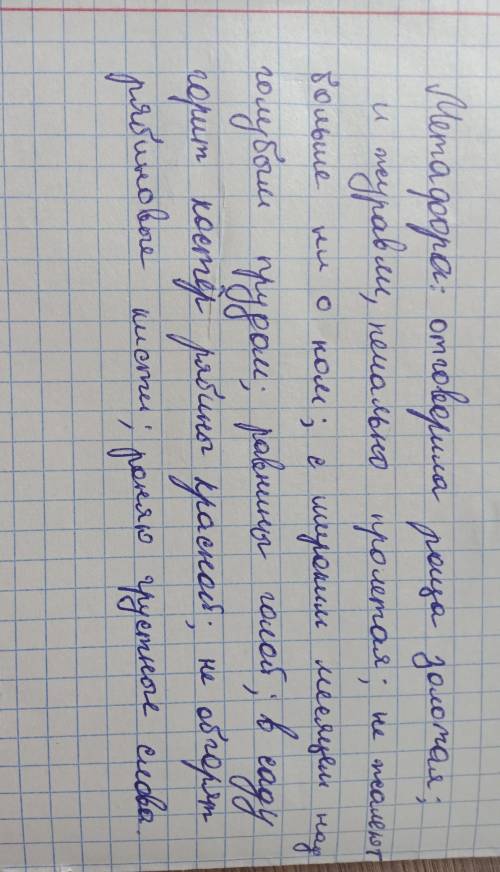 Метафора: отговорила роща золотая;
и журавли, печально пролетая; не жалеют
больше ни о ком; с широким месяцем над
голубым прудом; равнины голой; в саду
горит костёр рябины красной; не обгорят
рябиновые кисти; роняю грустные слова.